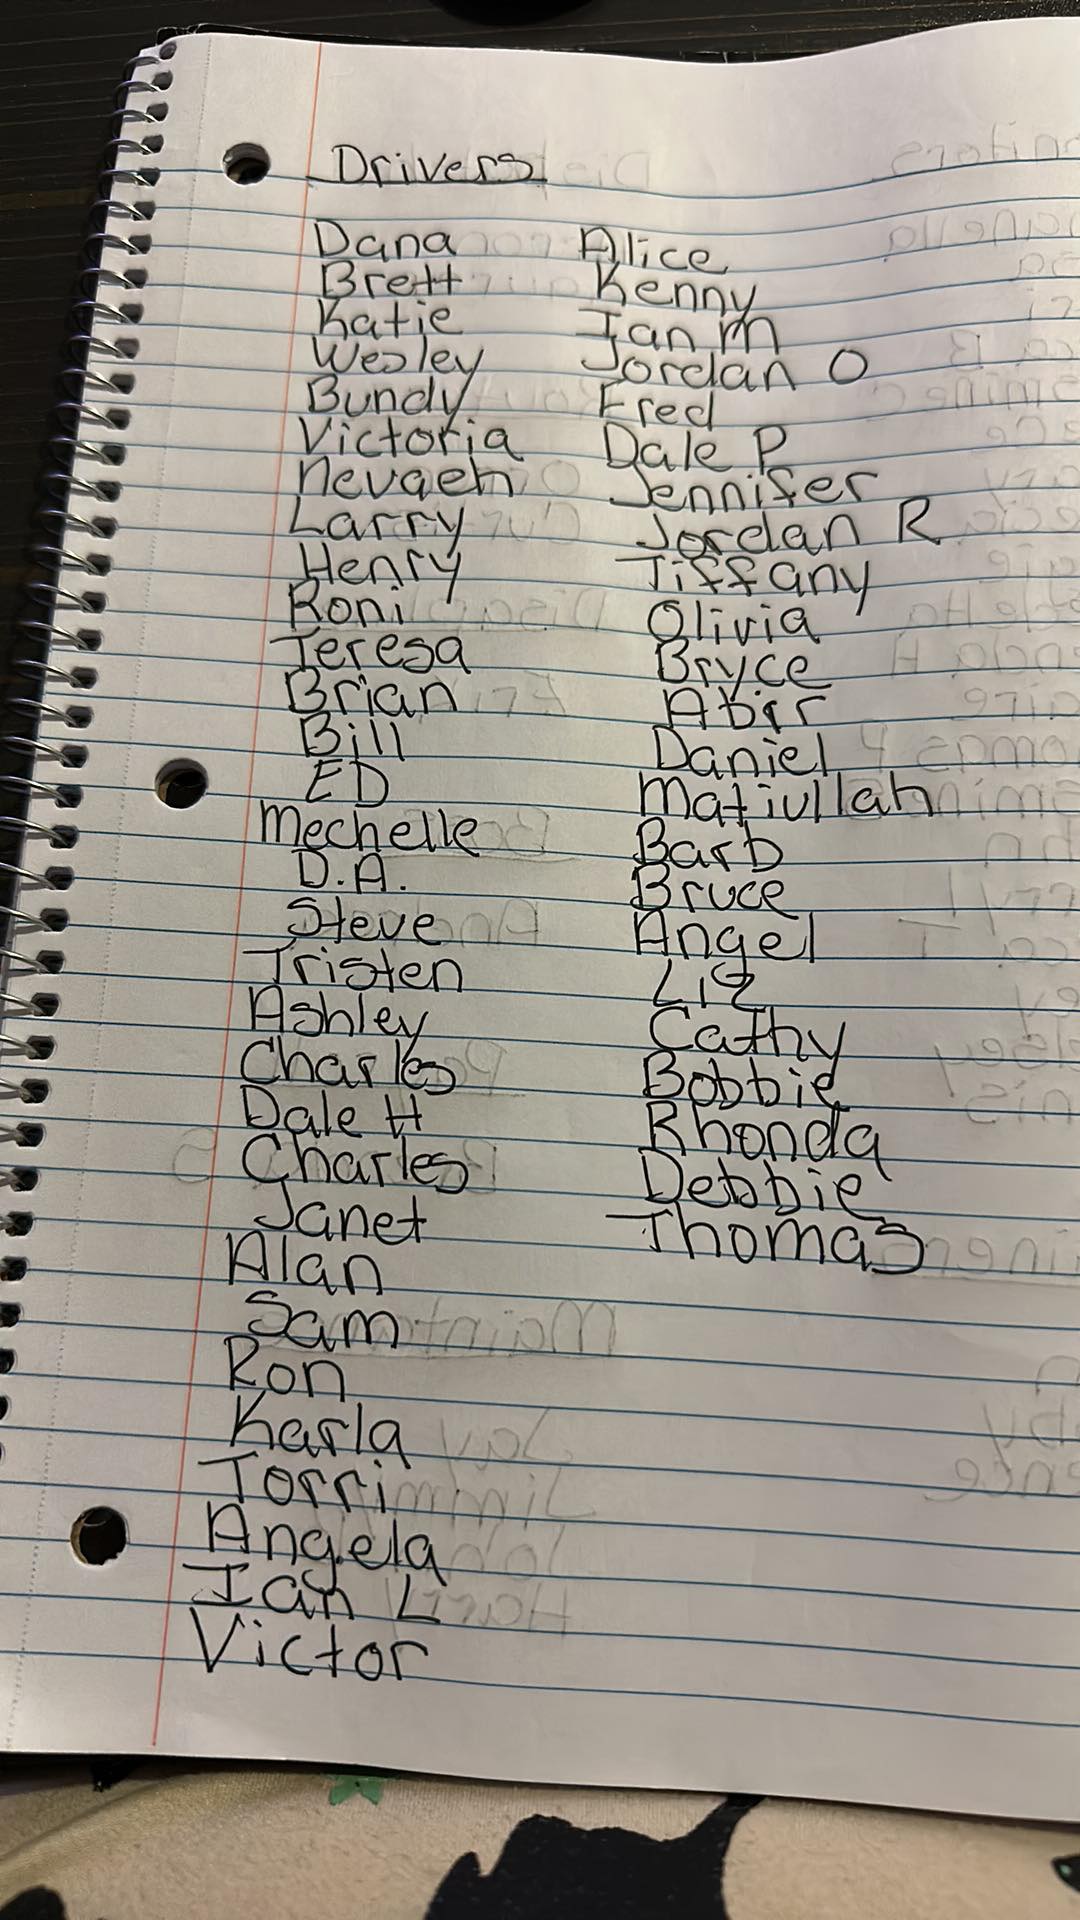 Drivers
Dana
Brett
Katie
Wesley
Bundy
Victoria
Nevaeh
Larry
Henry
Roni
Teresa
Brian
Bill
ED
Mechelle
D.A.
Steve
Tristen
Ashley
Charles
Dale H
Charles
Janet
Alan
Sam
Ron
Karla
Torri
Angela
Ian L
Victor
Alice
Kenny
Ian M
Jordan O
Fred
Dale P
Jennifer
Jordan R
Tiffany
Olivia
Bryce
Abir
Daniel
Matiullah
Barb
Bruce
Angel
Liz
Cathy
Bobbie
Rhonda
Debbie
Thomas